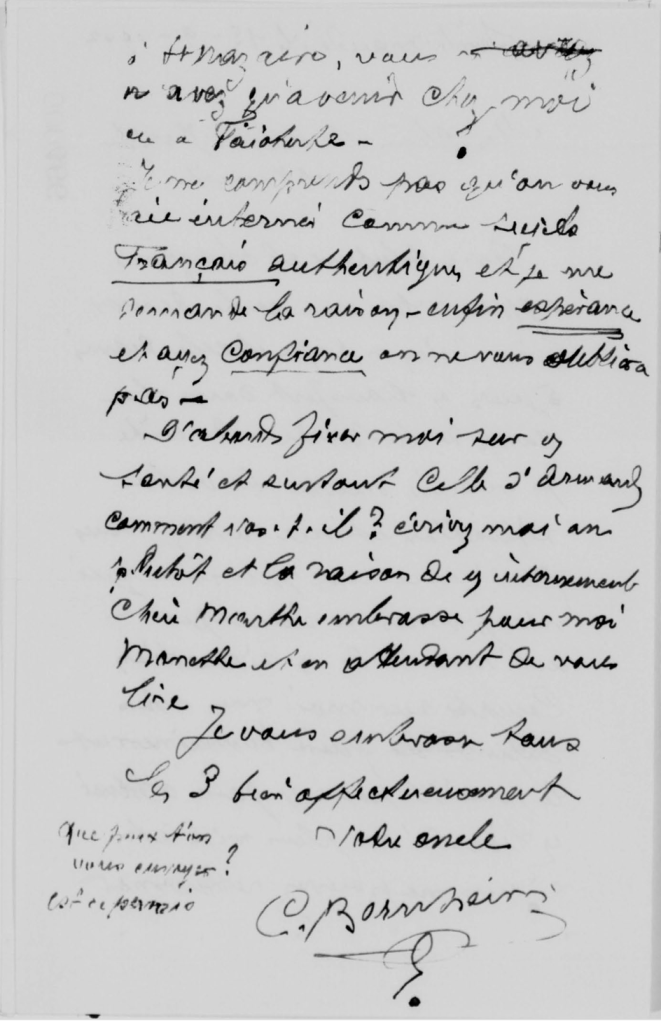 à St Nazaire, vous n'avez
n'avez qu'à venir chez moi
ou à
Je ne comprends pas qu'on vous
aie interné comme sujets
Français authentiques et je me
demande la raison - enfin espérance
et ayez confiance on ne vous oubliera
pas -
D'abord fixez moi sur
santé et surtout celle d'Armand
comment va-t-il ? écrivez moi au
plutôt et la raison de internement
Chère Marthe embrasse pour moi
et en attendant de vous
lire
Je vous embrasse tous
les 3 bien affectueusement
Votre oncle
C. Bernheim
Que peux t'on
vous envoyer ?
est ce permis